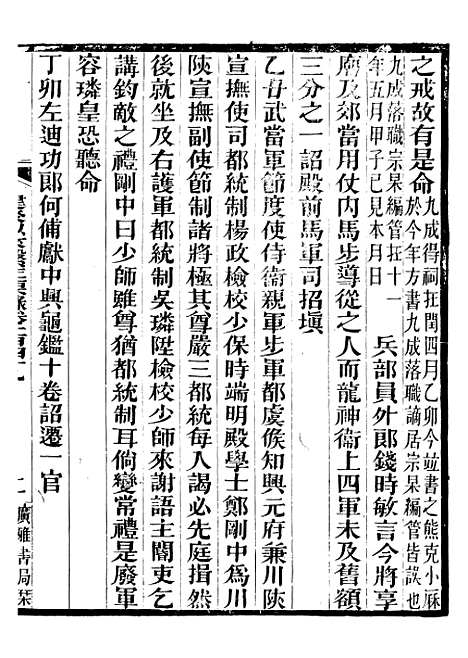 之戒故有是命
九成得祠在閏四月乙卯今竝書之熊克小厤
於今年方書九成落職謫居宗杲編管皆誤也
九成落職宗杲編管在十一
年五月甲子已見本月日
兵部員外郎錢時敏言今將享
廟及郊當用仗內馬步導從之人而龍神衞上四軍未及舊額
三分之一詔殿前馬軍司招塡
乙丑武當軍節度使侍衞親軍步軍都虞候知興元府兼川陝
宣撫使司都統制楊政檢校少保時端明殿學士鄭剛中爲川
陝宣撫副使節制諸將極其尊嚴三都統每人謁必先庭揖然
後就坐及右護軍都統制吳璘陞檢校少師來謝語主閽吏乞
講鈞敵之禮剛中曰少師雖尊猶都統制耳倘變常禮是廢軍
容璘皇恐聽命
丁卯左迪功郎何俌獻中興龜鑑十卷詔遷一官
二
廣雅書局栞